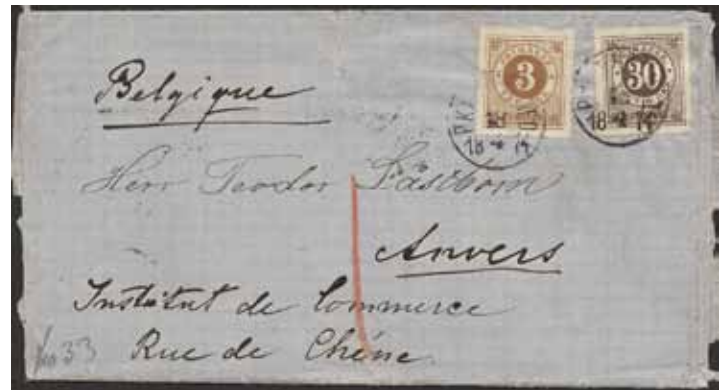 3 30
Belgique
Herr Teodor
Anvers
Institut de Commerce
33 Rue de Chêne